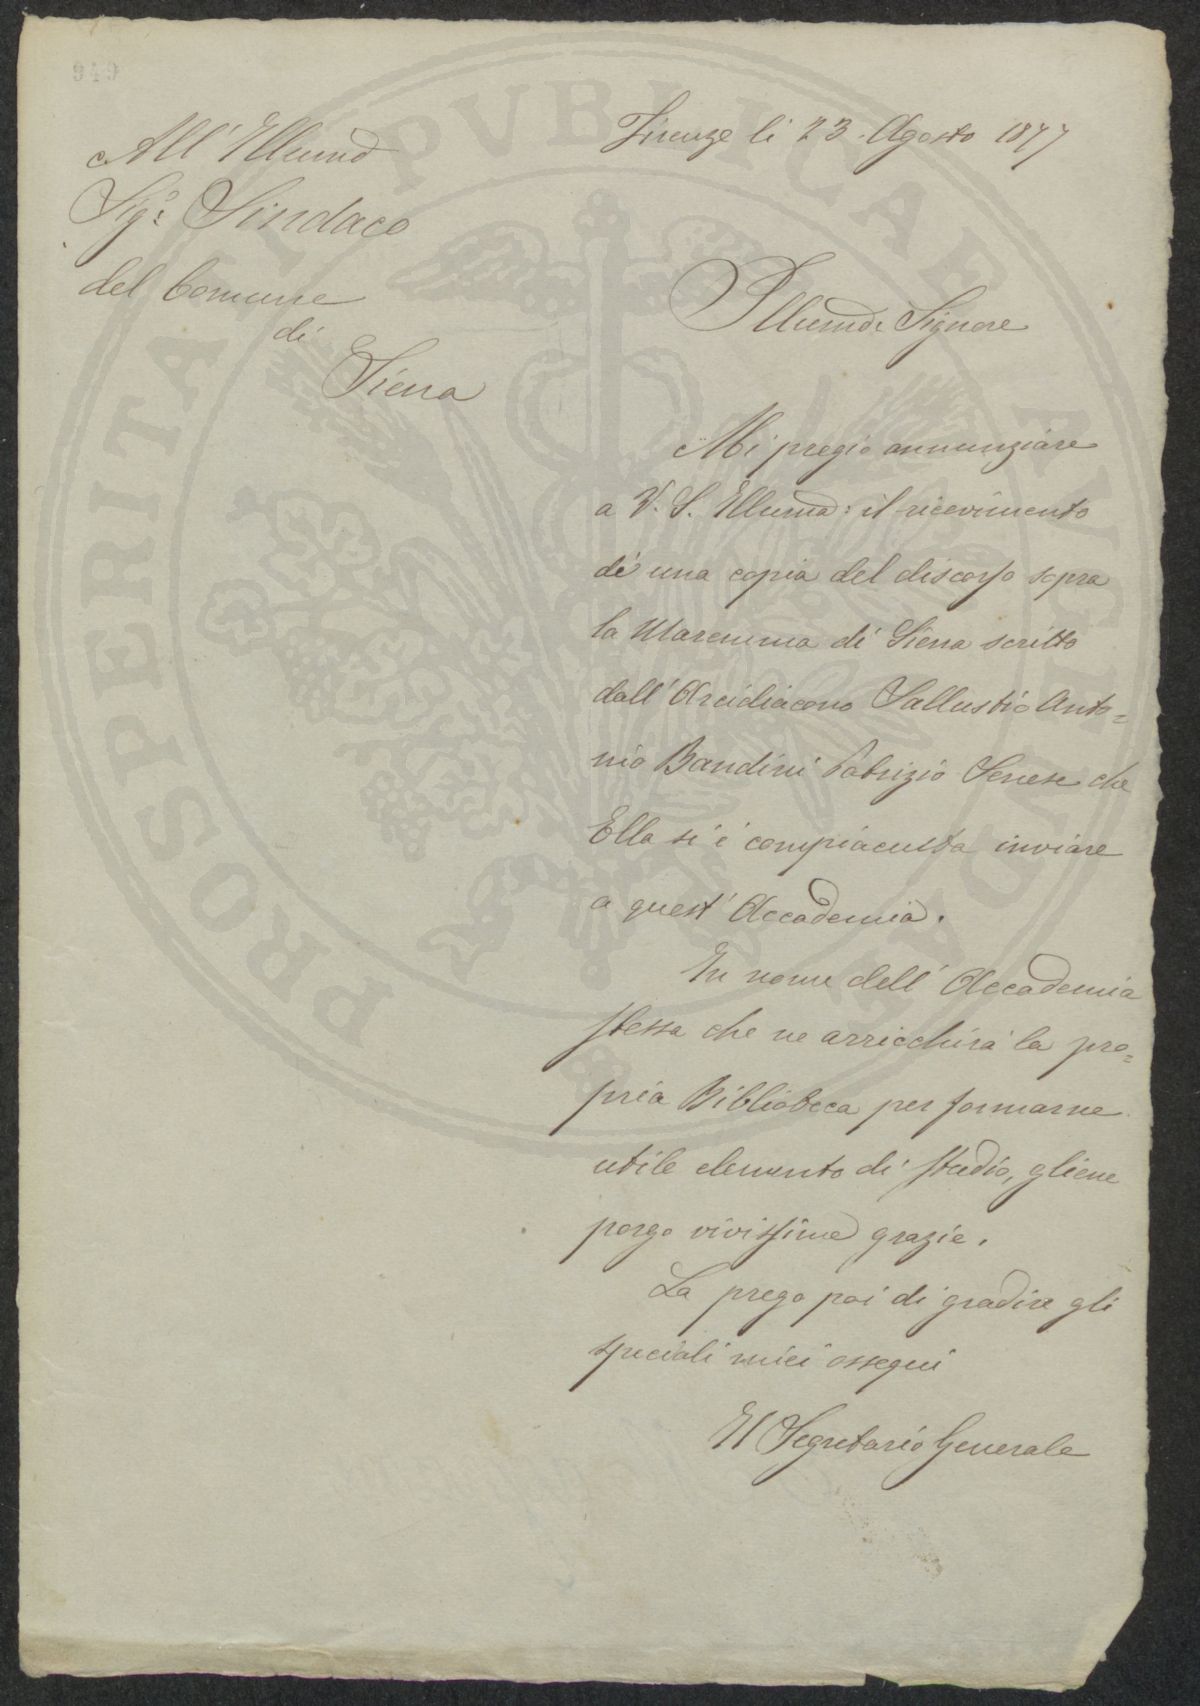 949
All' Illumo
Sigr. Sindaco
del Comune
di
Siena
Firenze li 23. Agosto 1877
Illumo: Signore
Mi pregio annunziare
a V. S. Illuma: il ricevimento
di una copia del discorso sopra
la Maremma di Siena scritto
dall' Arcidiacono Sallustio Anto=
nio Bandini Patrizio Senese che
Ella si è compiaciuta inviare
a quest' Accademia.
In nome dell' Accademia
stessa che ne arricchirà la pro=
pria Biblioteca per formarne
utile elemento di studio, gliene
porgo vivissime grazie.
La prego poi di gradire gli
speciali miei ossequi
Il Segretario Generale
PROSPERITATI PVBLICAE AVGENDAE